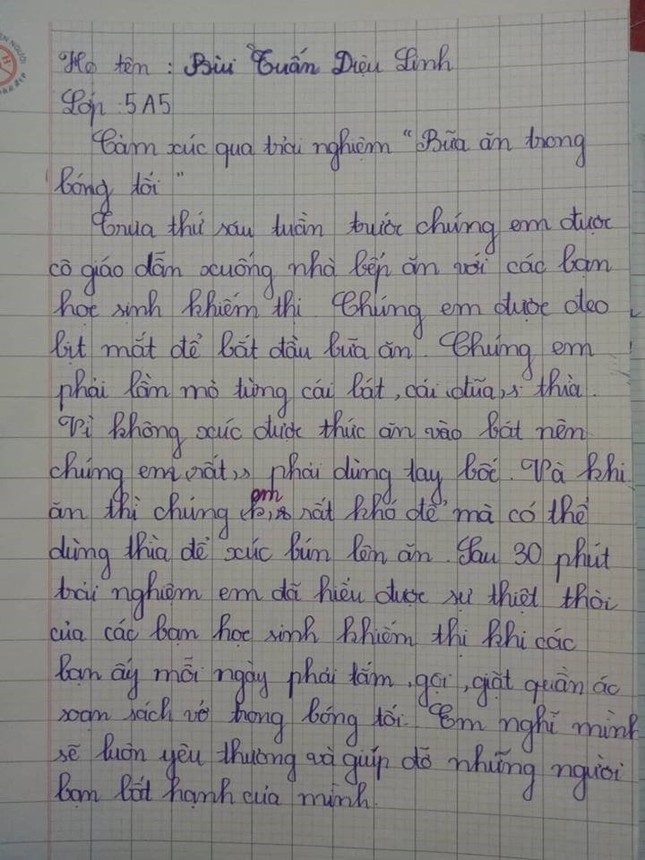 Họ tên : Bùi Tuấn Diệu Linh
Lớp 5A5
Cảm xúc qua trải nghiệm "Bữa ăn trong
bóng tối"
Trưa thứ sáu tuần trước chúng em được
cô giáo dẫn xuống nhà bếp ăn với các bạn
học sinh khiếm thị. Chúng em được đeo
bịt mắt để bắt đầu bữa ăn. Chúng em
phải lần mò từng cái bát, cái đũa, thìa.
Vì không xúc được thức ăn vào bát nên
chúng em rất phải dùng tay bốc. Và khi
ăn thì chúng em rất khó để mà có thể
dùng thìa để xúc bún lên ăn. Sau 30 phút
trải nghiệm em đã hiểu được sự thiệt thòi
của các bạn học sinh khiếm thị khi các
bạn ấy mỗi ngày phải tắm, gội, giặt quần áo
soạn sách vở trong bóng tối. Em nghĩ mình
sẽ luôn yêu thương và giúp đỡ những người
bạn bất hạnh của mình.